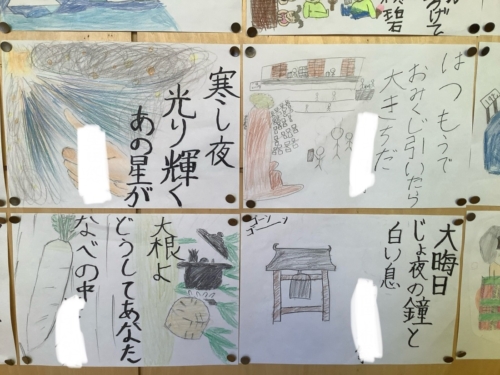 げて
碧
寒し夜
光り輝く
あの星が
はつもうで
おみくじ引いたら
大きちだ
大根よ
どうしてあなた
なべの中
ゴーン
ゴーン
大晦日
じょ夜の鐘と
白い息